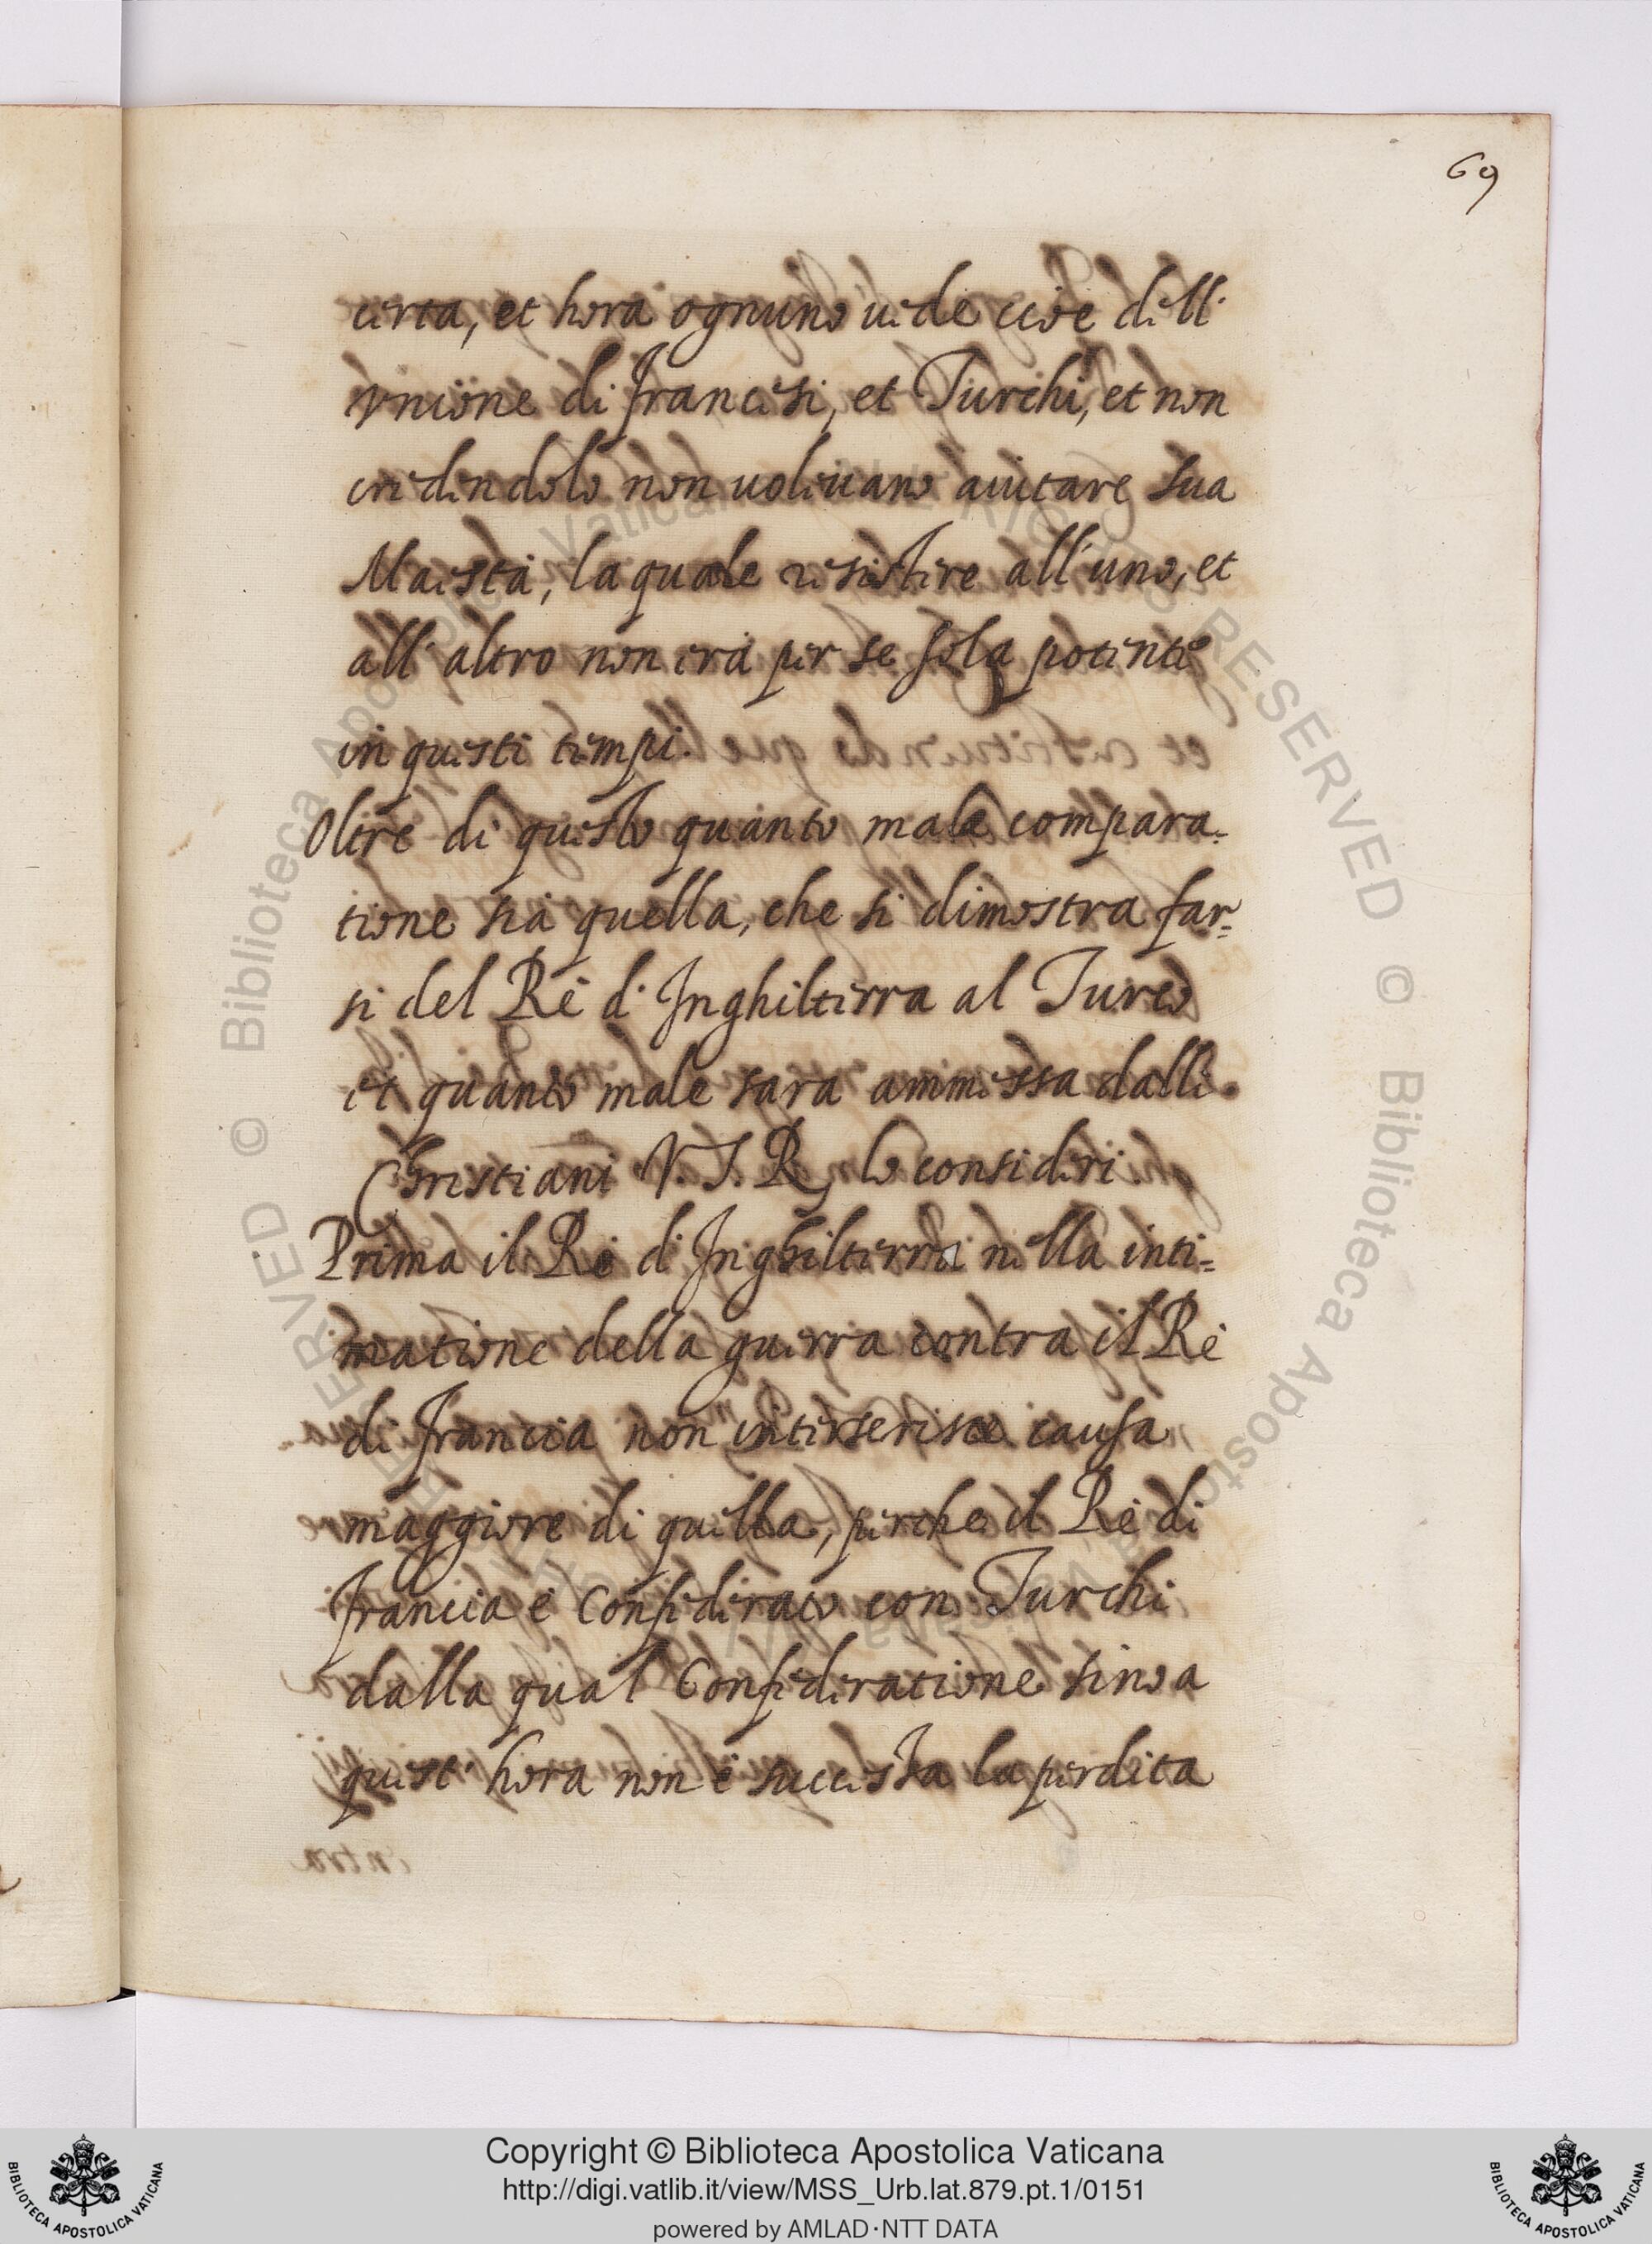 69
certa, et hora ognuno uede cioè dell'
vnione di francesi, et Turchi, et non
credendolo non uoleuano aiutare sua
Maestà, la quale resistere all'uno, et
all'altro non era per se sola potente
in questi tempi.
Oltre di questo quanto mala compara=
tione sia quella, che si dimostra far=
si del Rè d'Inghilterra al Turco
et quanto male sara ammessa dalli
Christiani V. S. R. lo consideri.
Prima il Rè d'Inghilterra nella inti=
matione della guerra contra il Rè
di francia non interserisce causa
maggiore di quella, perche il Rè di
francia è Confederato con Turchi
dalla qual Confederatione sino a
quest'hora non è successa la perdita
© Biblioteca Apostolica Vaticana
RESERVED
Copyright © Biblioteca Apostolica Vaticana
http://digi.vatlib.it/view/MSS_Urb.lat.879.pt.1/0151
powered by AMLAD·NTT DATA
BIBLIOTECA APOSTOLICA VATICANA
BIBLIOTECA APOSTOLICA VATICANA